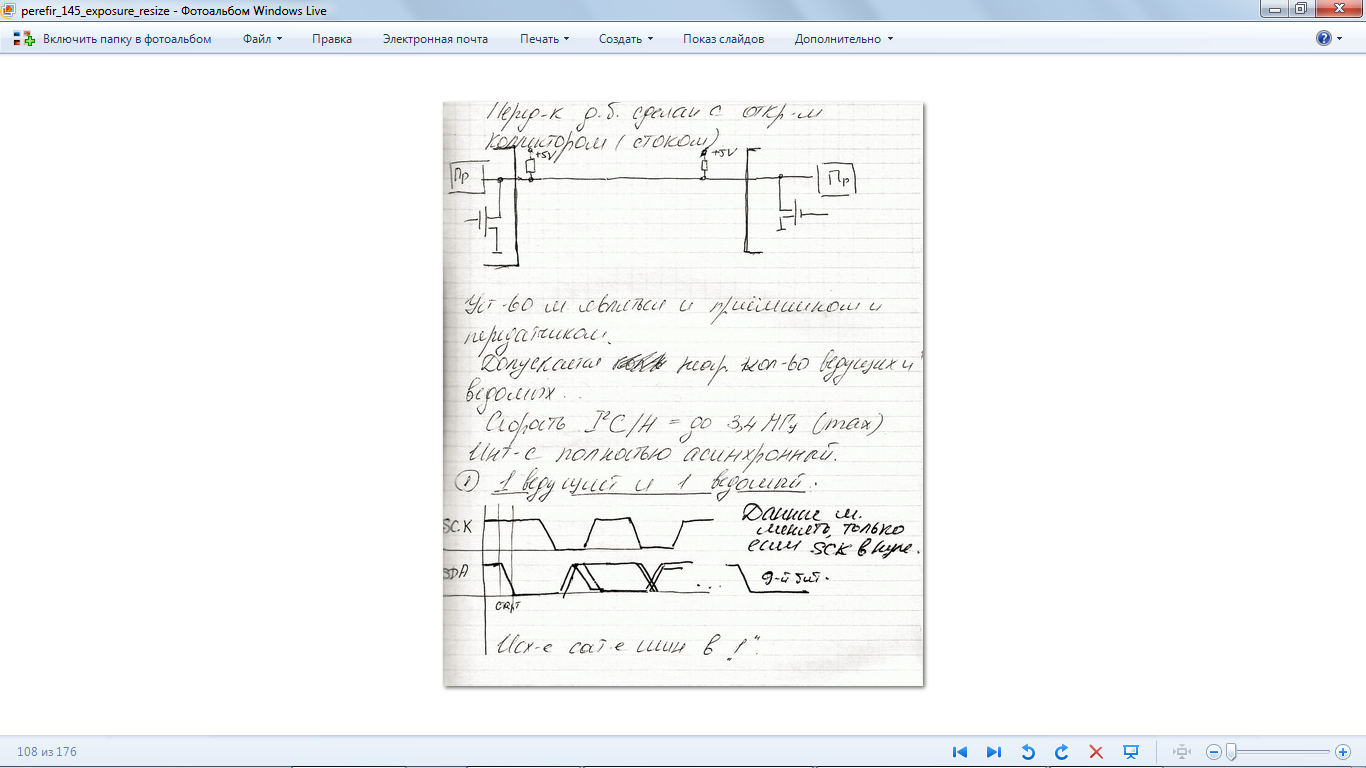 perefir_145_exposure_resize - Фотоальбом Windows Live
Включить папку в фотоальбом Файл Правка Электронная почта Печать Создать Показ слайдов Дополнительно
Перед-к д.б. сделан с откр-м
коллектором (стоком)
+5V +5V
Пр Пр
Уст-во м. являться и приёмником и
передатчиком.
Допускается кол-во ведущих и
ведомых.
Скорость I²C/H = до 3,4 МГц (max)
Инт-с полностью асинхронный.
① 1 ведущий и 1 ведомый.
SCK
Данные м.
менять, только
если SCK в нуле.
SDA
... 9-й бит.
старт
Исх-е сост-е шин в „1“.
108 из 176